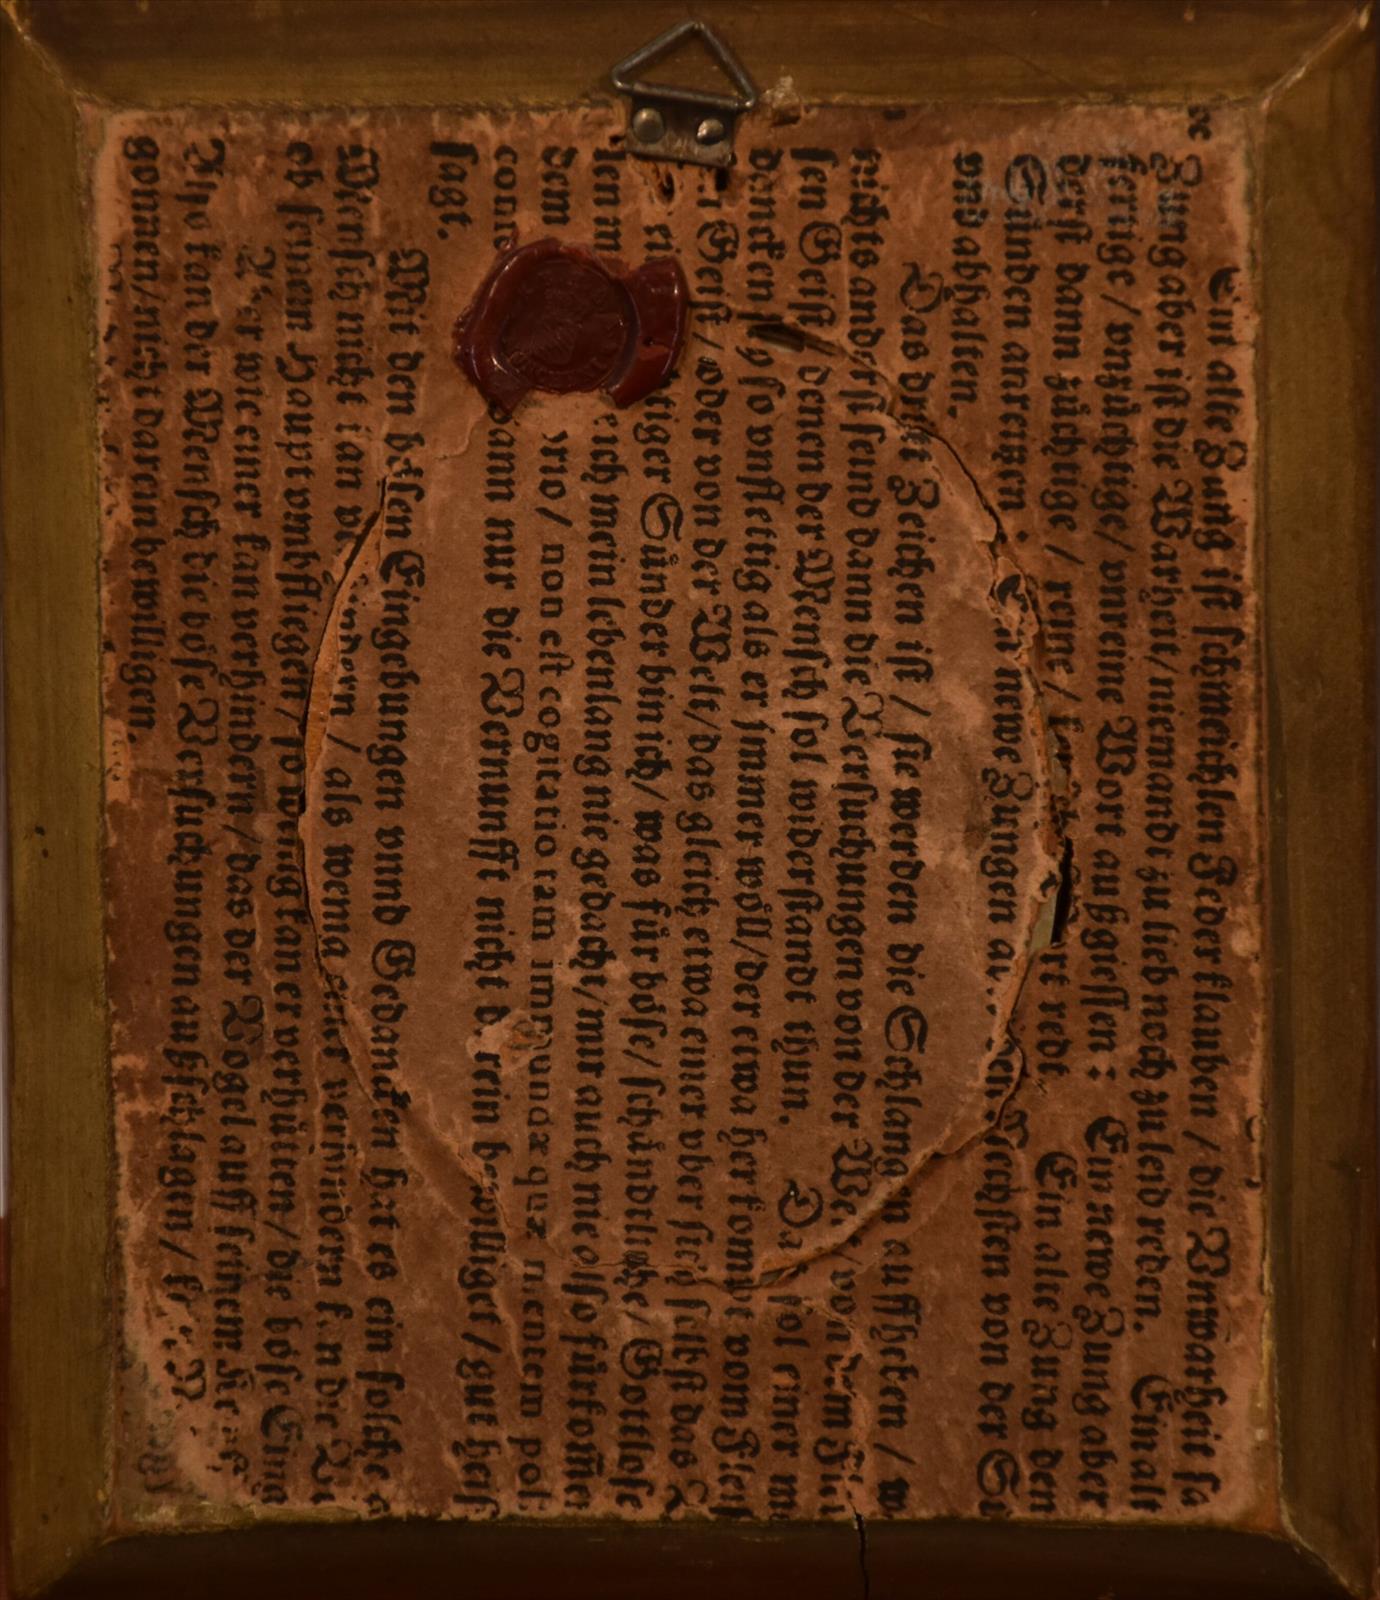 Ein alte Zung ist schmeichlen Federklauben / die Vnwarheit sa
Zung aber ist die Warheit / niemandt zu lieb noch zu leid reden. Ein alt
fertige / vnzüchtige / vnreine Wort außgiessen : Ein newe Zung aber
dann züchtige / reine / redt Ein alte Zung den
Sünden anreitzen : Ein newe Zungen den Nechsten von der Sü
vnd abhalten.
Das dritt Zeichen ist / sie werden die Schlangen auffheben / w
nichts anders seind dann die Versuchungen von der Welt / von dem Flei
sen Geist / denen der Mensch sol widerstandt thun. Da sol einer me
dancken so vnflettig als er immer wöll / der etwa herkombt vom Fleis
Geist / oder von der Welt / das gleich etwa einer vber sich selbst das
tiger Sünder bin ich / was für böse / schändtliche / Gottlose
mein lebenlang nie gedacht / mir auch nie also fürkomen
dem rio / non est cogitatio tam immunda quæ mentem pol
dann nur die Vernunfft nicht drein bewilliget / gut heiß
sagt.
Mit den bösen Eingebungen vnnd Gedancken hat es ein solche
Mensch nicht kan / als wenig einer verhindern kan die
ob seinem Haupt vmbfliegen / so wenig kan er verhüten / die böse Eing
Aber wie einer kan verhindern / das der Vogel auff seinem
Also kan der Mensch die böse Versuchungen außschlagen /
gonnen / nicht darein bewilligen.